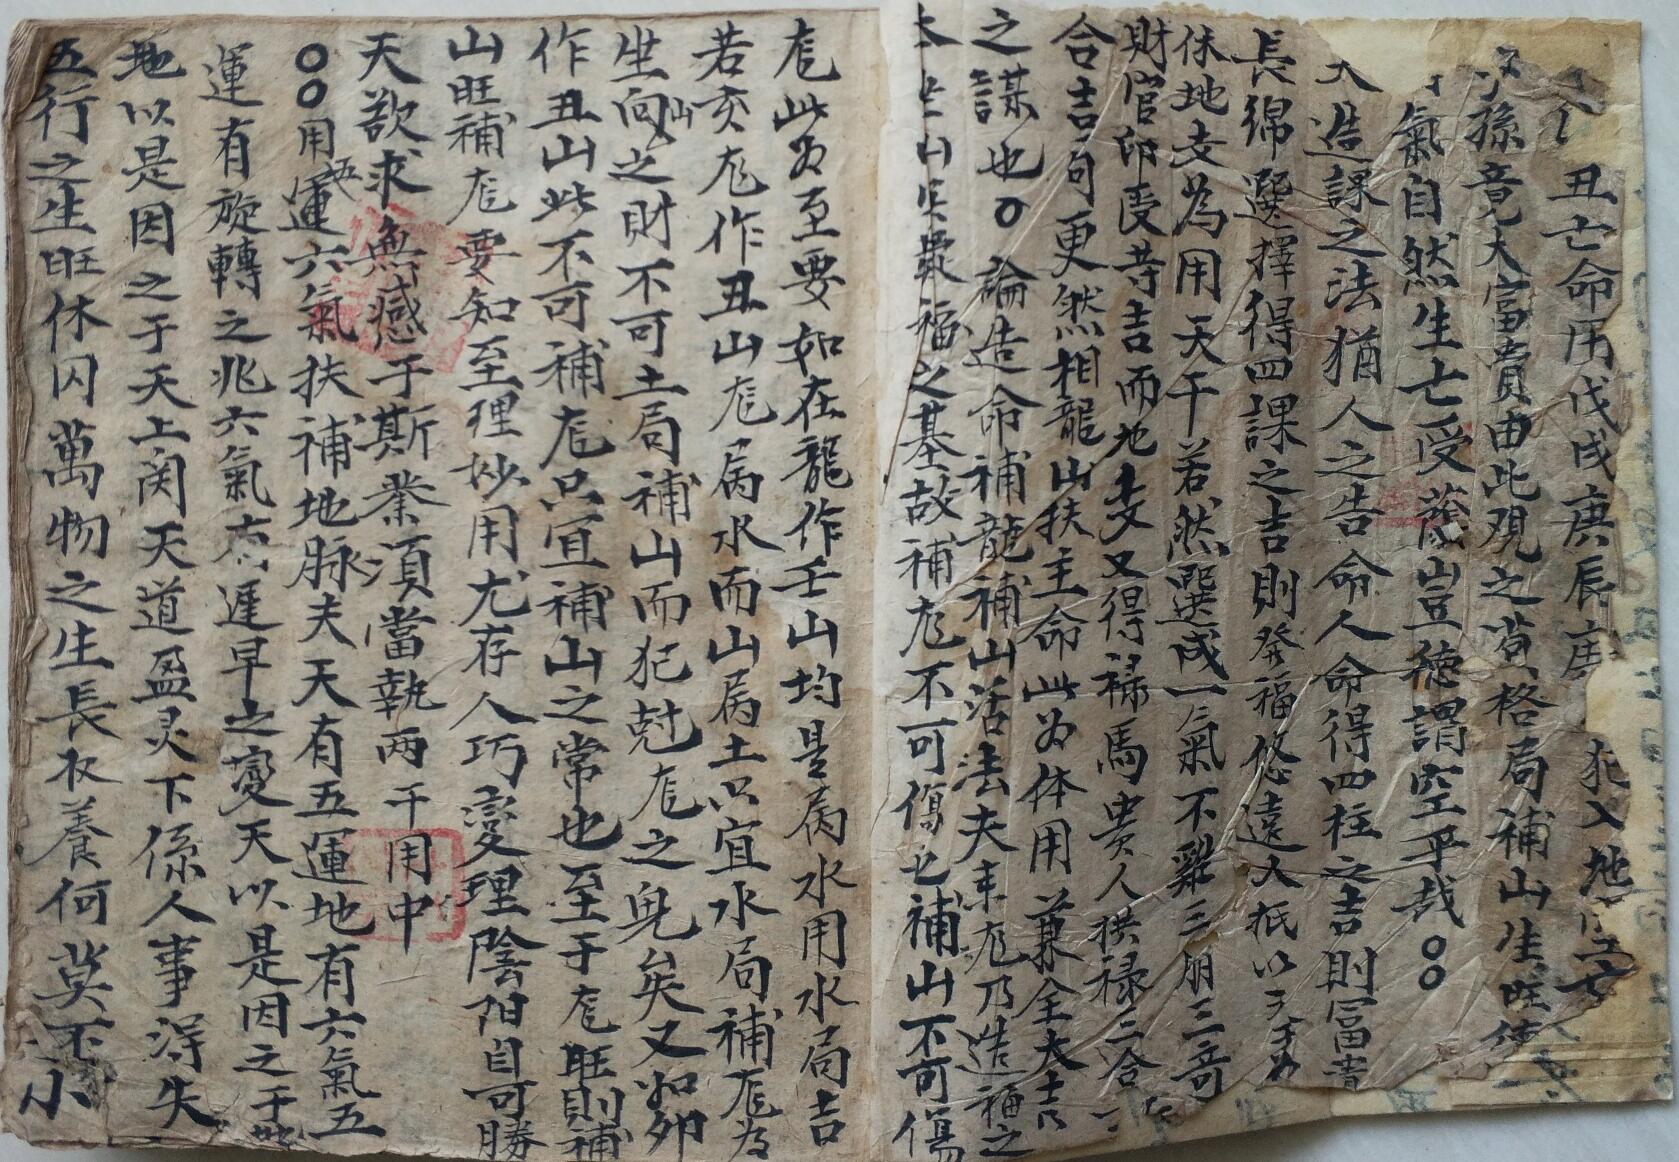 丑亡命用戊戌庚辰庚
孫竟大富貴由此观之格局補山生旺
氣自然生亡受蔭豈徳謂空乎哉〇〇
造課之法猶人之告命人命得四柱之吉則富貴
長綿選擇得四課之吉則發福悠遠大抵以
休地支為用天干若然選成一氣不雜三朋三奇
財官印受等吉而地支又得禄馬貴人拱禄三合
合吉局更然相龍山扶主命此为体用兼全大吉
之謀也〇論造命補龍補山活法夫来龙乃造福之
本坐山安聚福之基故補龙不可傷也補山不可傷
龙此为至要如在龍作壬山均是属水用水局吉
若亥龙作丑山龙属水而山属土只宜水局補龙为
坐向山之財不可土局補山而犯尅龙之児矣又如卯
作丑山此不可補龙只宜補山之常也至于龙旺則補
山旺補龙要知至理妙用尤存人巧變理陰阳自可勝
天欲求無憾于斯業須當執两干用中
〇〇用五運六氣扶補地脉夫天有五運地有六氣五
運有旋轉之兆六氣有遲早之變天以是因之于地
地以是因之于天上関天道盈灵下係人事淂失
五行之生旺休囚萬物之生長收養何莫不小